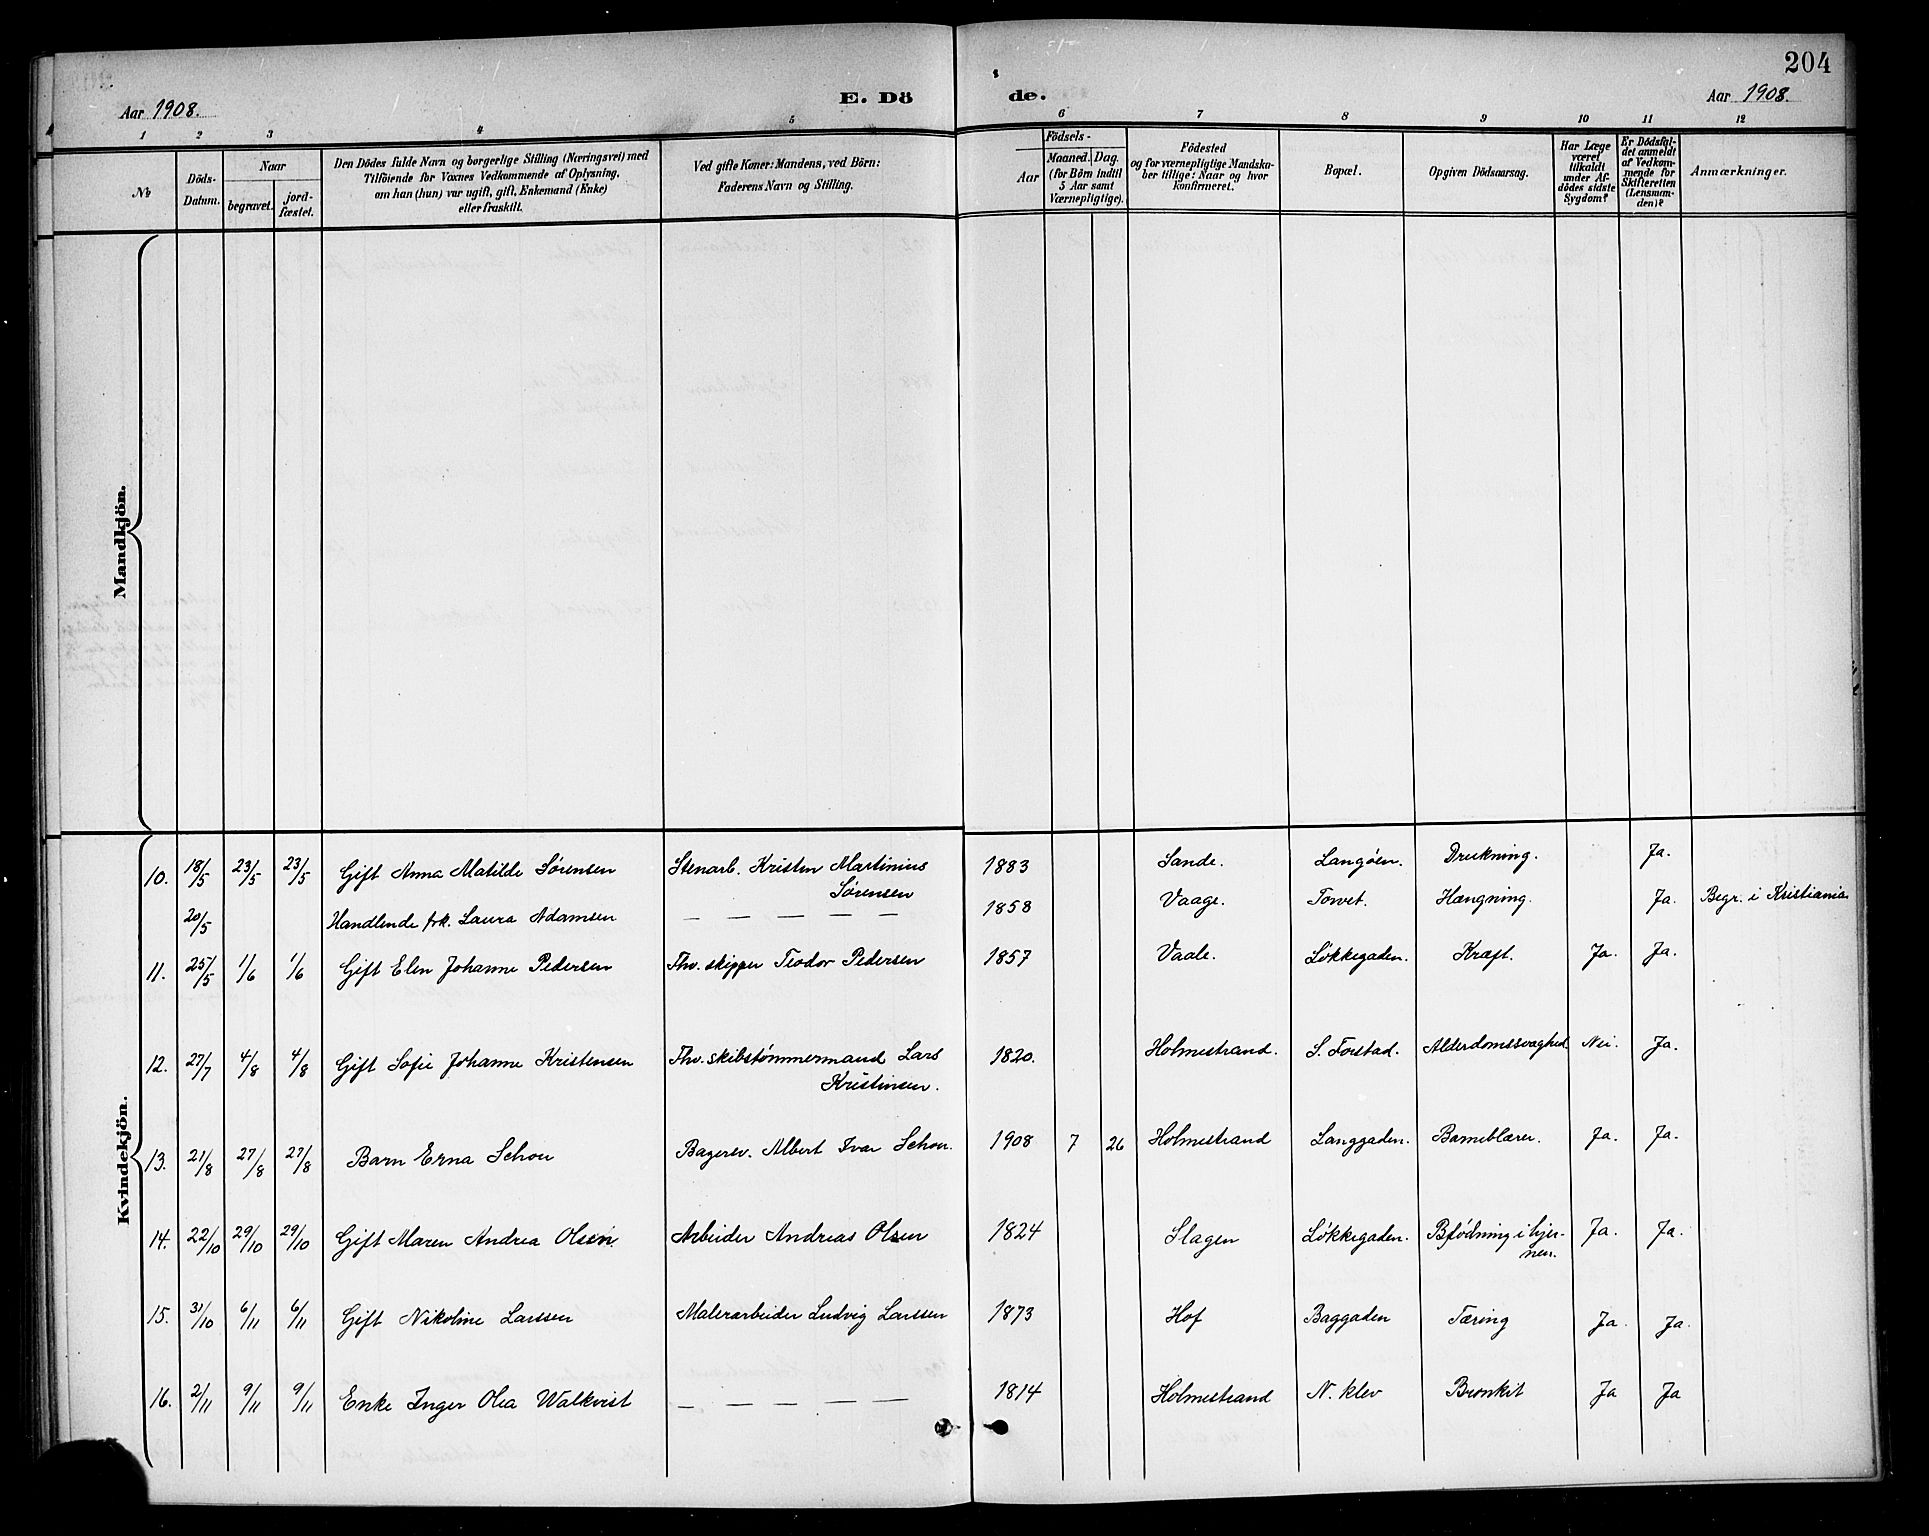 204
Aar 1908.
E. Dö
de.
Aar 1908.
1 2 3 4 5 6 7 8 9 10 11 12
№
Döds-
Datum.
Naar
begravet.
jord-
fæstet.
Den Dödes fulde Navn og borgerlige Stilling (Næringsvei) med
Tilföiende for Voxnes Vedkommende af Oplysning,
om han (hun) var ugift, gift, Enkemand (Enke)
eller fraskilt.
Ved gifte Koner: Mandens, ved Börn:
Faderens Navn og Stilling.
Födsels-
Aar
Maaned. Dag.
(for Börn indtil
5 Aar samt
Værnepligtige).
Födested
og for værnepligtige Mandska-
ber tillige: Naar og hvor
konfirmeret.
Bopæl.
Opgiven Dödsaarsag.
Har Læge
været
tilkaldt
under Af-
dödes sidste
Sygdom?
Er Dödsfal-
det anmeldt
af Vedkom-
mende for
Skifteretten
(Lensman-
den)?
Anmærkninger.
Mandkjön.
Kvindekjön.
10. 18/5 23/5 23/5 Gift Anna Matilde Sørensen Stenarb. Kristen Martinius 1883 Sande. Langøen. Drukning. Ja.
Sørensen
20/5 Handlende frk. Laura Adamsen — — — — — 1858 Vaage. Torvet. Hængning. Ja. Begr. i Kristiania.
11. 25/5 1/6 1/6 Gift Elen Johanne Pedersen Fhv. skipper Teodor Pedersen 1857 Vaale. Løkkegaden. Kræft. Ja. Ja.
12. 27/7 4/8 4/8 Gift Sofie Johanne Kristensen Fhv. skibstømmermand Lars 1820. Holmestrand. S. Forstad. Alderdomssvaghed. Nei. Ja.
Kristensen.
13. 21/8 27/8 27/8 Barn Erna Schou Bagersv. Albert Ivar Schou. 1908 7 26 Holmestrand Langgaden. Barneblærer. Ja. Ja.
14. 22/10 29/10 29/10 Gift Maren Andrea Olsen Arbeider Andreas Olsen 1824 Slagen Løkkegaden. Blødning i hjer-
nen. Ja. Ja.
15. 31/10 6/11 6/11 Gift Nikoline Larssen Malerarbeider Ludvig Larssen 1873 Hof Baggaden Tæring Ja. Ja.
16. 2/11 9/11 9/11 Enke Inger Olea Walkvist — — — — — 1814 Holmestrand N. klev Bronkit Ja Ja